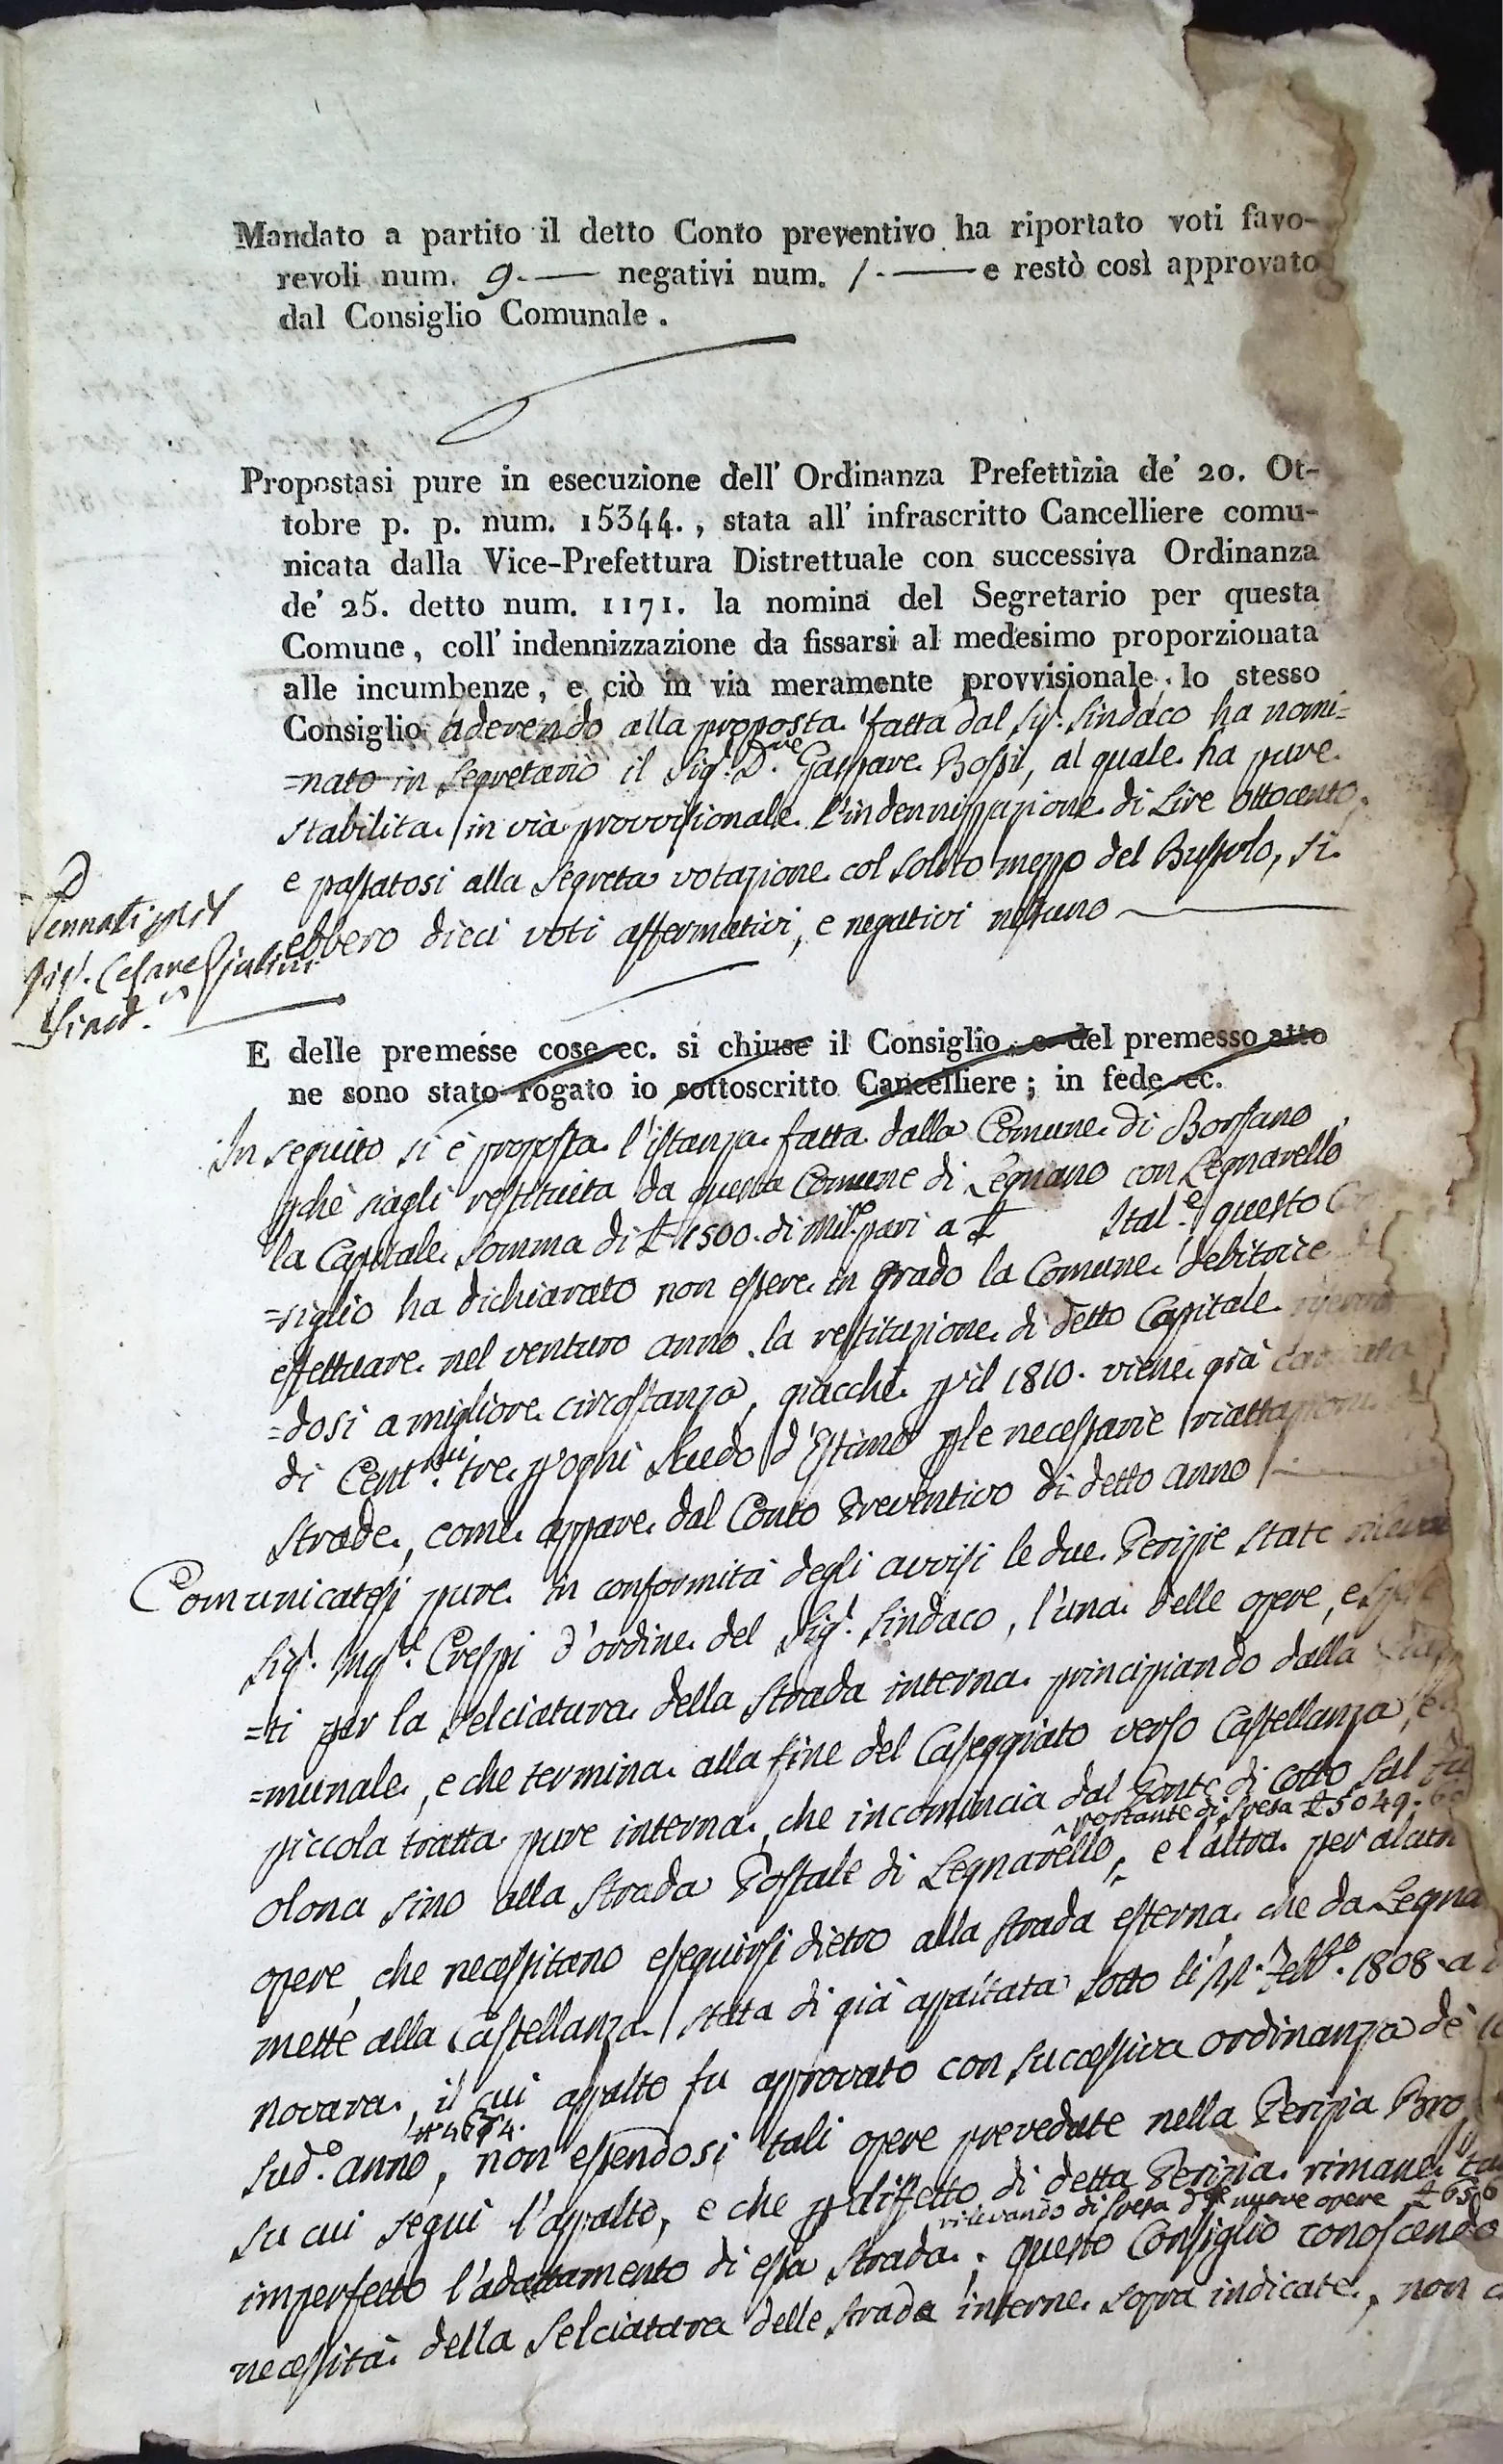 Mandato a partito il detto Conto preventivo ha riportato voti favo-
revoli num. 9.— negativi num. 1.— e restò così approvato
dal Consiglio Comunale.
Propostasi pure in esecuzione dell' Ordinanza Prefettizia de' 20. Ot-
tobre p. p. num. 15344., stata all' infrascritto Cancelliere comu-
nicata dalla Vice-Prefettura Distrettuale con successiva Ordinanza
de' 25. detto num. 1171. la nomina del Segretario per questa
Comune, coll' indennizzazione da fissarsi al medesimo proporzionata
alle incumbenze, e ciò in via meramente provvisionale, lo stesso
Consiglio aderendo alla proposta fatta dal Sig.r Sindaco ha nomi=
=nato in Segretario il Sig.r D.re Gaspare Bossi, al quale ha pure
stabilita in via provvisionale l'indennizzazione di Lire ottocento,
e passatosi alla segreta votazione col solito mezzo del Bussolo, si
ebbero dieci voti affermativi, e negativi nessuno —
Sig.r Cesare Giulini
Sind.
E delle premesse cose ec. si chiuse il Consiglio, e del premesso atto
ne sono stato rogato io sottoscritto Cancelliere; in fede ec.
In seguito si è proposta l'istanza fatta dalla Comune di Borsano,
pchè siagli restituita da questa Comune di Legnano con Legnarello
la Capitale somma di £ 1500. di Mil.o pari a £ Ital.e, questo
=siglio ha dichiarato non essere in grado la Comune debitrice
effettuare nel venturo anno la restituzione di detto Capitale
=dosi a migliore circostanza, giacchè p il 1810. viene già
di Cent.mi tre p ogni Scudo d'Estimo p le necessarie riattazioni
strade, come appare dal Conto Preventivo di detto anno —
Comunicatesi pure in conformità degli avvisi le due Perizie state
Sig.r Ing.e Crespi d'ordine del Sig.r Sindaco, l'una delle opere, e
=ti per la selciatura della strada interna principiando dalla
=munale, e che termina alla fine del Caseggiato verso Castellanza, e
piccola tratta pure interna, che incomincia dal Ponte di Cotto sul
portante di spesa £ 5049.
olona sino alla strada Postale di Legnarello, e l'altra per alcun
opere, che necessitano eseguirsi dietro alla strada esterna, che da Legna
mette alla Castellanza stata di già appaltata sotto li 11. Febb.o 1808. a
Novara, il cui appalto fu approvato con successiva ordinanza de'
sud.o anno, non essendosi tali opere prevedute nella Perizia
su cui seguì l'appalto, e che p difetto di detta Perizia rimane
rilevando di spesa d.te nuove opere £
imperfetto l'adattamento di essa strada; questo Consiglio conoscendo
necessità della selciatura delle strade interne sopra indicate, non